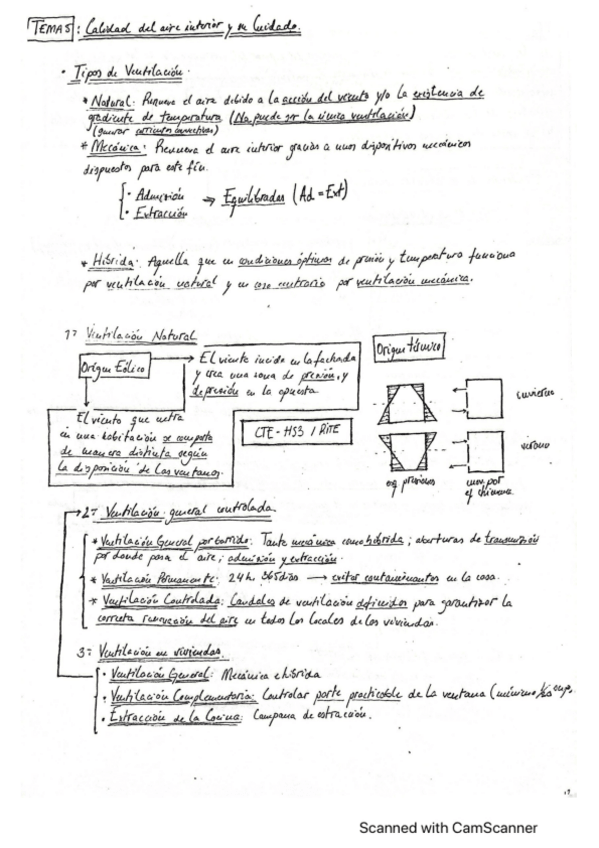 TEMA 5: Calidad del aire interior y su Cuidado.
• Tipos de Ventilación.
* Natural: Renueva el aire debido a la acción del viento y/o la existencia de
gradiente de temperatura (No puede ser la única ventilación)
(generar corrientes convectivas)
* Mecánica: Renueva el aire interior gracias a unos dispositivos mecánicos
dispuestos para este fin.
• Admisión
→ Equilibradas (Ad = Ext)
• Extracción
* Híbrida: Aquella que en condiciones óptimas de presión y temperatura funciona
por ventilación natural y en caso contrario por ventilación mecánica.
1- Ventilación Natural
Origen Eólico
→ El viento incide en la fachada
y crea una zona de presión, y
depresión en la opuesta.
Origen térmico
El viento que entra
en una habitación se comporta
de manera distinta según
la disposición de las ventanas.
CTE-HS3 / RITE
invierno
verano
esq presiones
mov. por
ef chimenea
2- Ventilación general controlada
* Ventilación General por barrido: Tanto mecánica como híbrida; aberturas de transmisión
por donde pasa el aire; admisión y extracción.
* Ventilación Permanente: 24h. 365 días → evitar contaminantes en la casa.
* Ventilación Controlada: Caudales de ventilación definidos para garantizar la
correcta renovación del aire en todos los locales de las viviendas.
3- Ventilación en viviendas
• Ventilación General: Mecánica e híbrida
• Ventilación Complementaria: Controlar parte practicable de la ventana (mínimo
• Extracción de la Cocina: Campana de extracción.
Scanned with CamScanner